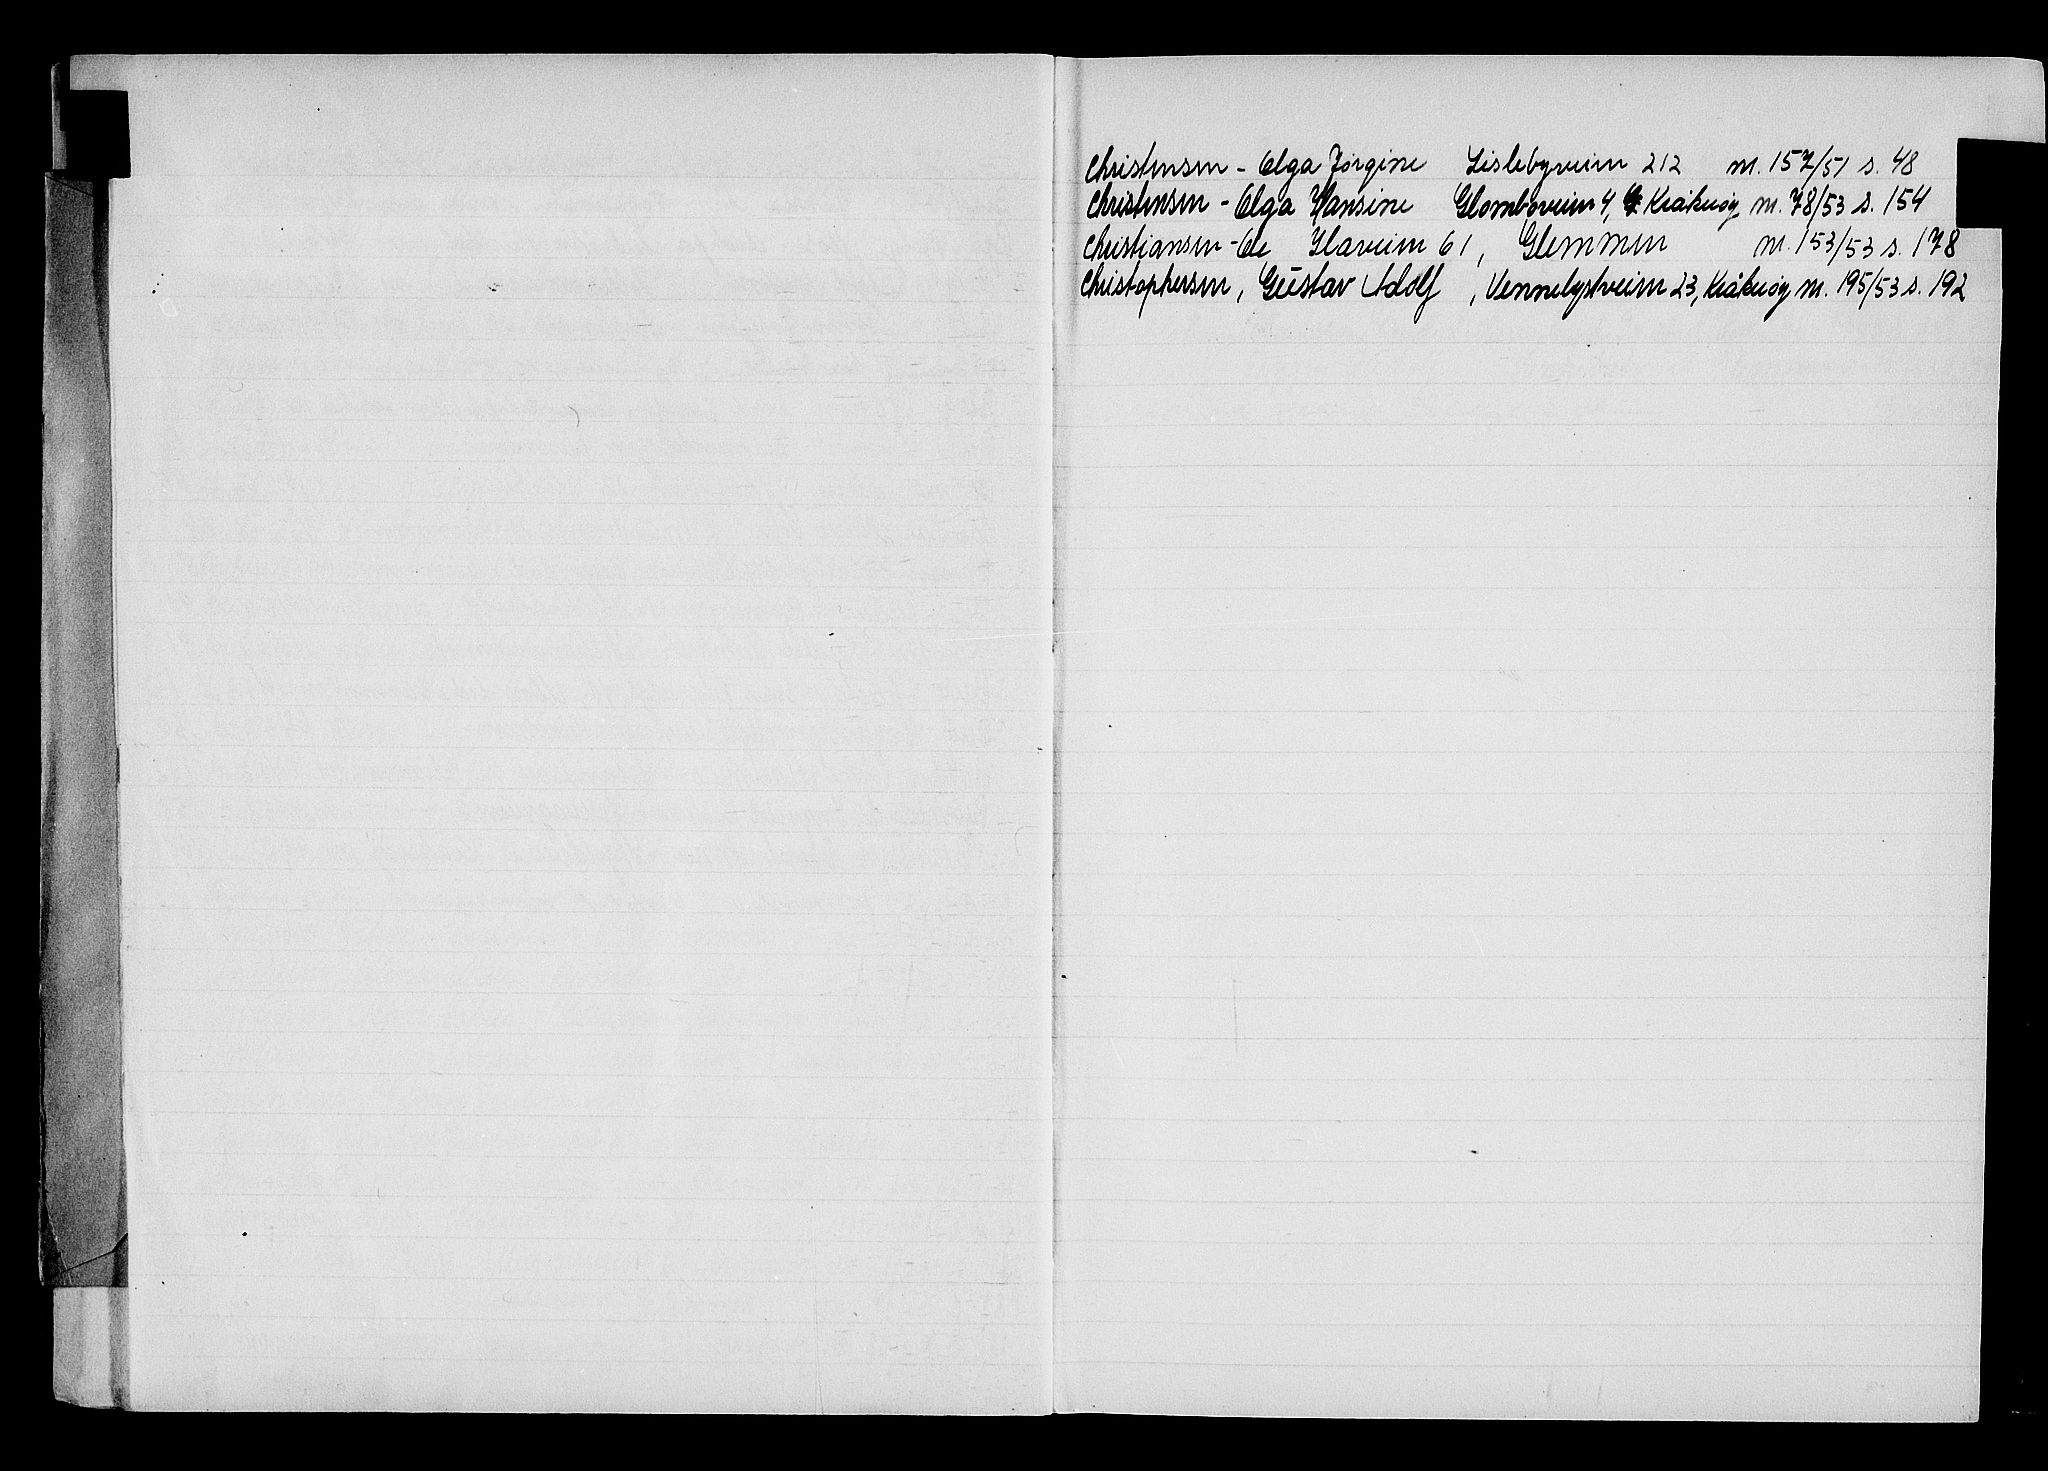 Christensen - Olga Jørgine Lislebyveien 212 nr. 157/51 s. 48
Christensen - Olga Hansine Glomboveien 4, Kråkerøy nr. 78/53 s. 154
Christiansen - Ole Ilaveien 61, Glemmen nr. 153/53 s. 178
Christophersen, Gustav Adolf, Vennelystveien 23, Kråkerøy nr. 195/53 s. 192